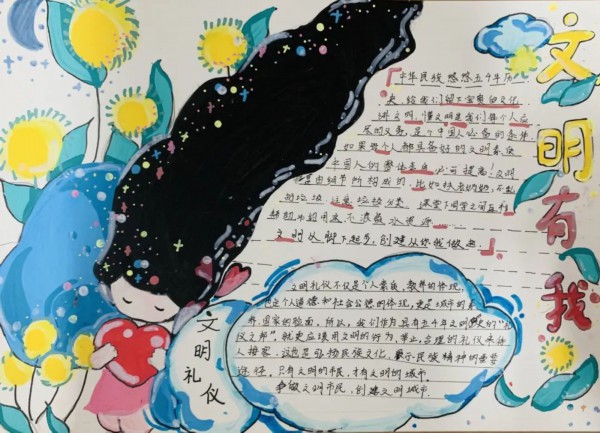 文明有我
「中华民族悠悠五千年历
史,给我们留下宝贵的文化
讲文明,懂文明是我们每个人应
尽的义务,是个中国人必备的条件
如果每个人都具备好的文明素质
中国人的整体素质必可提高!文明
是由细节所构成的,比如扶老奶奶,不乱
扔垃圾,注意垃圾分类,课堂下同学之间互相
帮助,生活用水不浪费水资源
文明从脚下起步,创建从你我做起」
文明礼仪
文明礼仪不仅是个人素质、教养的体现,
也是个人道德和社会公德的体现,更是城市的素
养、国家的脸面,所以,我们作为具有五千年文明史的“礼
仪之邦”,就更应该用文明的行为,举止,合理的礼仪来待
人接客,这也是弘扬民族文化、展示民族精神的重要
途径,只有文明的市民,才有文明的城市。
争做文明市民,创建文明城市。